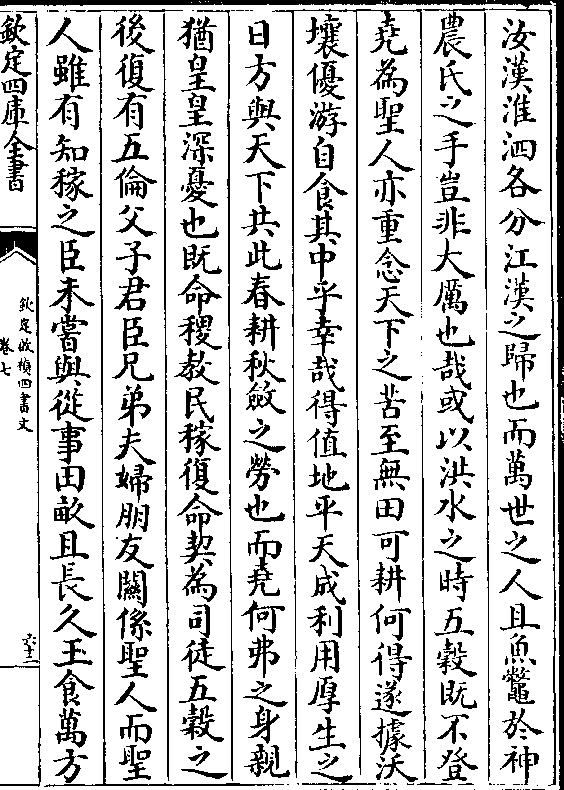 汝漢淮泗各分江漢之歸也而萬世之人且魚鼈於神
農氏之手豈非大厲也哉或以洪水之時五穀既不登
堯為聖人亦重念天下之苦至無田可耕何得遂據沃
壤優游自食其中乎幸哉得值地平天成利用厚生之
日方與天下共此春耕秋斂之勞也而堯何弗之身親
猶皇皇深憂也既命稷教民稼復命契為司徒五穀之
後復有五倫父子君臣兄弟夫婦朋友關係聖人而聖
人雖有知稼之臣未嘗與從事田畝且長久玉食萬方
欽定四庫全書
欽定啟禎四書文
卷七
六十二